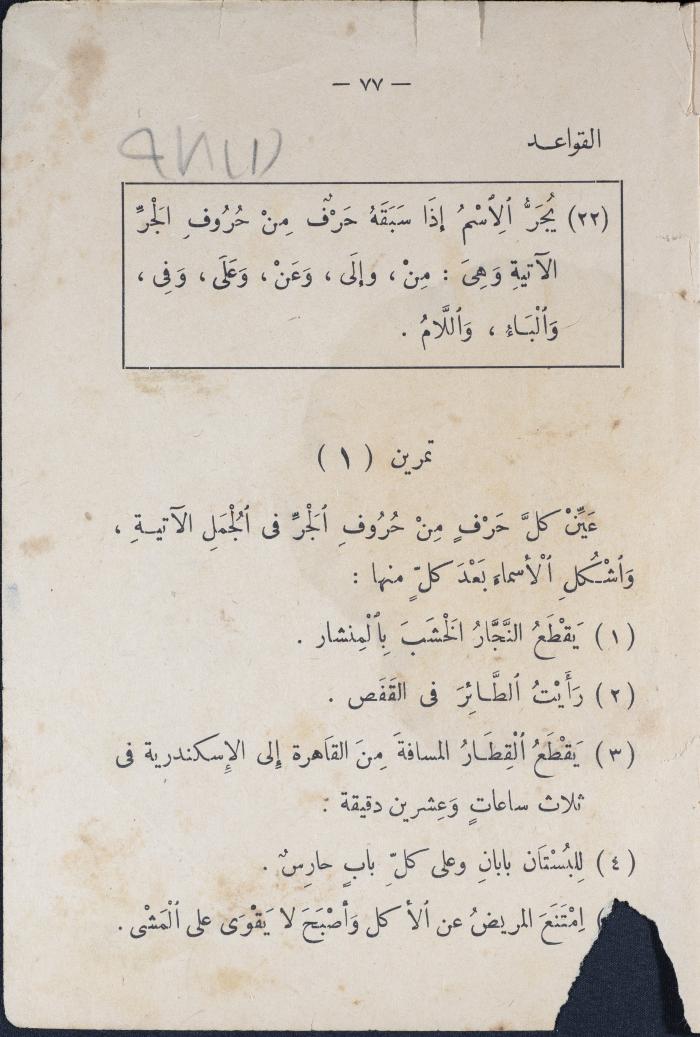 — ٧٧ —
القواعـد
(٢٢) يُجَرُّ ٱلِٱسْمُ إذَا سَبَقَهُ حَرْفٌ مِنْ حُرُوفِ الجَرِّ
الآتيةِ وَهِىَ : مِنْ ، وإلَى ، وَعَنْ ، وَعَلَى ، وَفِى ،
وَٱلْبَـاءُ ، وَٱللَّامُ .
تمرين ( ١ )
عَيِّنْ كلَّ حَرْفٍ مِنْ حُرُوفِ ٱلْجَرِّ فى ٱلْجُمَلِ الآتيـةِ ،
وَٱشْـكُلِ ٱلْأسماءَ بَعْدَ كلٍّ منها :
(١) يَقْطَعُ النَّجَّارُ الخَشَبَ بِٱلْمِنشار .
(٢) رَأَيْتُ ٱلطَّـائِرَ فى القَفَص .
(٣) يَقْطَعُ ٱلْقِطَـارُ المسافةَ مِنَ القاَهرة إلى الإسكندرية فى
ثلاث ساعاتٍ وَعِشرين دقيقة .
(٤) لِلبُسْتَان بابانِ وعلى كلِّ بابٍ حارِسٌ .
اِمْتَنَعَ المريضُ عن ٱلأكل وَأَصْبَحَ لا يَقْوَى على ٱلْمَشْى .